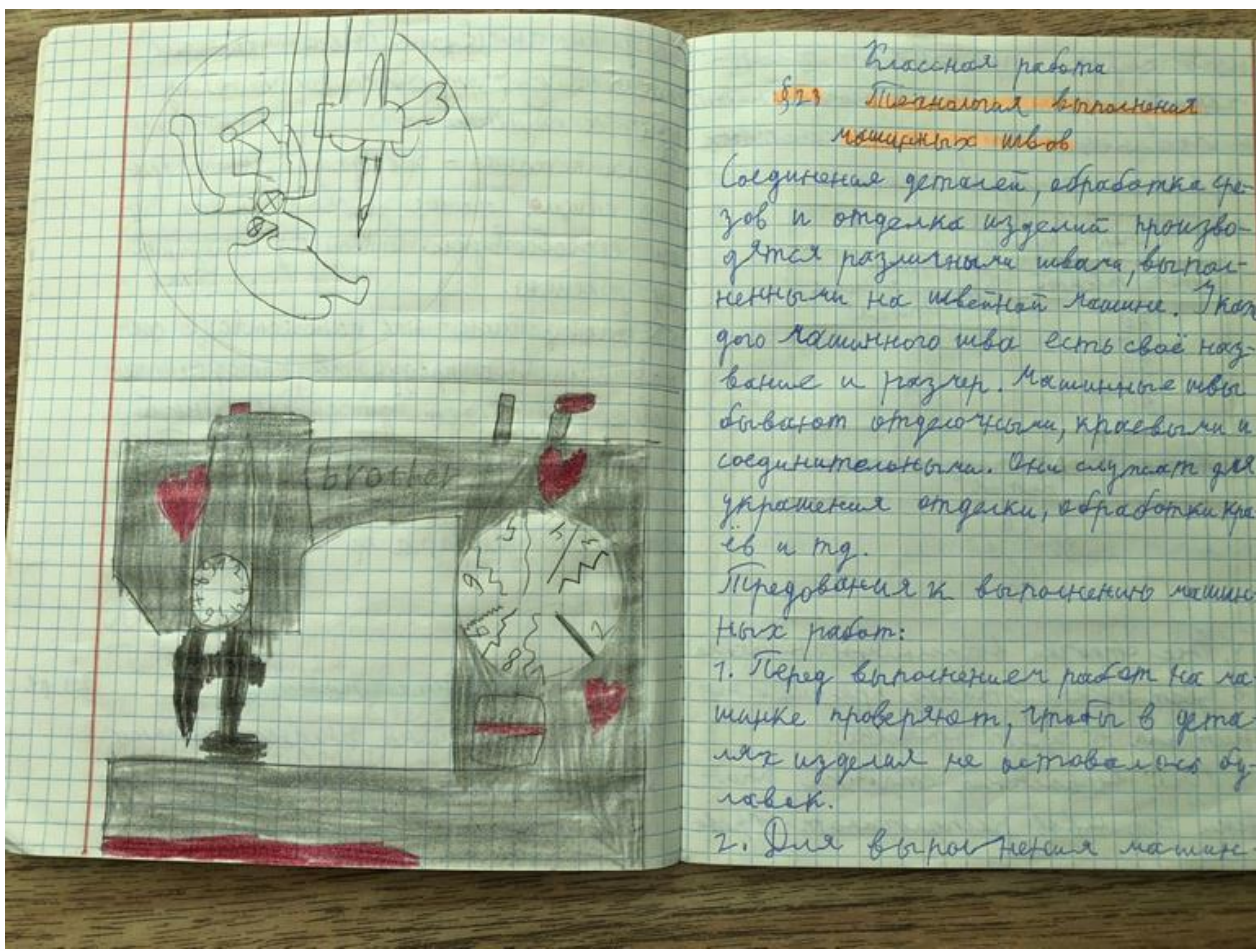 brother
5
4
3
6
2
7
8
Классная работа
§23 Технология выполнения
машинных швов
Соединения деталей, обработка сре-
зов и отделка изделий произво-
дятся различными швами, выпол-
ненными на швейной машине. У каж
дого машинного шва есть своё наз-
вание и размер. Машинные швы
бывают отделочными, краевыми и
соединительными. Они служат для
украшения отделки, обработки кра
ёв и тд.
Предования к выполнению машин
ных работ:
1. Перед выполнением работ на ма
шинке проверяют, чтобы в дета
лях изделия не оставалось бу-
лавок.
2. Для выполнения машин-